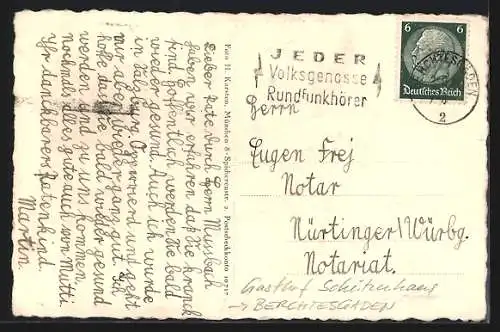 Lieber Pate durch Herrn Mussbach
haben wir erfahren daß Sie krank
sind. Hoffentlich werden Sie bald
wieder gesund. Auch ich wurde
in Salzburg operiert und geht
mir aber wieder ganz gut. Ich
hoffe daß Sie bald wieder gesund
werden und zu uns kommen.
nochmals alles gute auch von Mutti
Ihr dankbares Patenkind
Martin
Foto H. Karsten, München 8
Postscheckkonto
JEDER
Volksgenosse
Rundfunkhörer
6 6
Deutsches Reich
BERCHTESGADEN
2
Herrn
Eugen Frej
Notar
Nürtinger/Würbg.
Notariat.
Gasthof Schützenhaus
→ BERCHTESGADEN